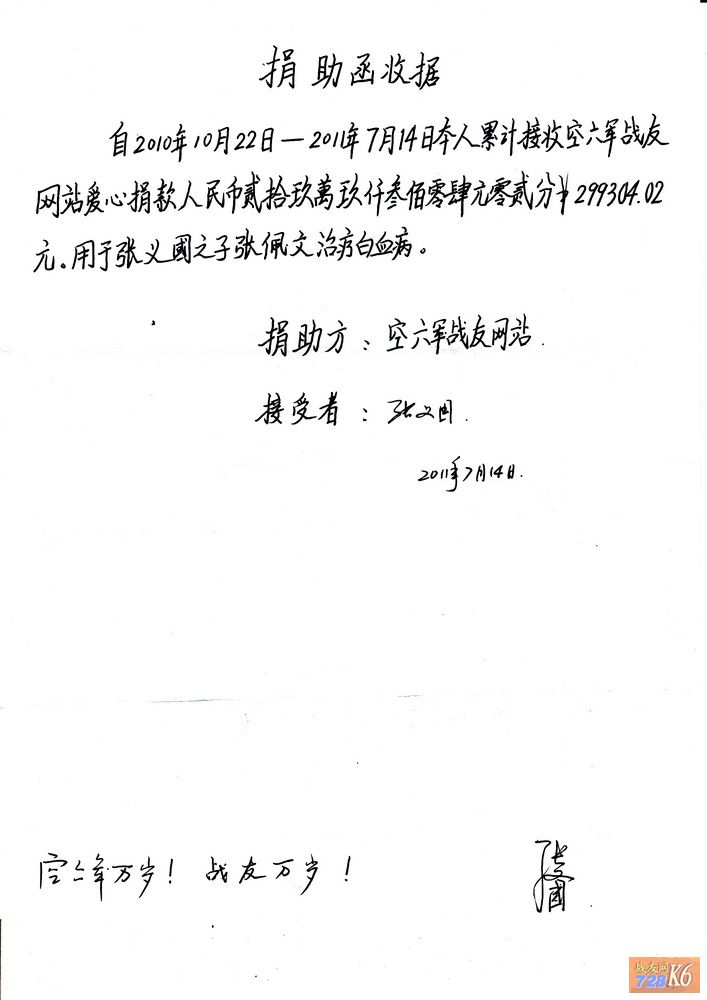 捐助函收据
自2010年10月22日—2011年7月14日本人累计接收空六军战友
网站爱心捐款人民币贰拾玖萬玖仟叁佰零肆元零贰分¥299304.02
元。用于张义國之子张佩文治疗白血病。
捐助方：空六军战友网站.
接受者：张义国.
2011年7月14日.
空六军万岁！战友万岁！
张义國
战友网
728K6